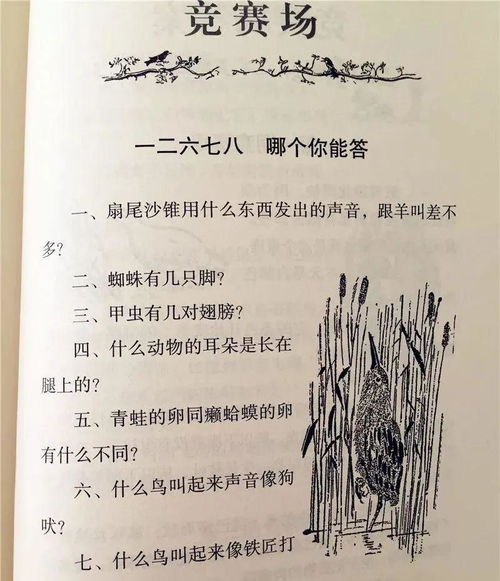 竞赛场
一二六七八 哪个你能答
一、扇尾沙锥用什么东西发出的声音，跟羊叫差不
多？
二、蜘蛛有几只脚？
三、甲虫有几对翅膀？
四、什么动物的耳朵是长在
腿上的？
五、青蛙的卵同癞蛤蟆的卵
有什么不同？
六、什么鸟叫起来声音像狗
吠？
七、什么鸟叫起来像铁匠打